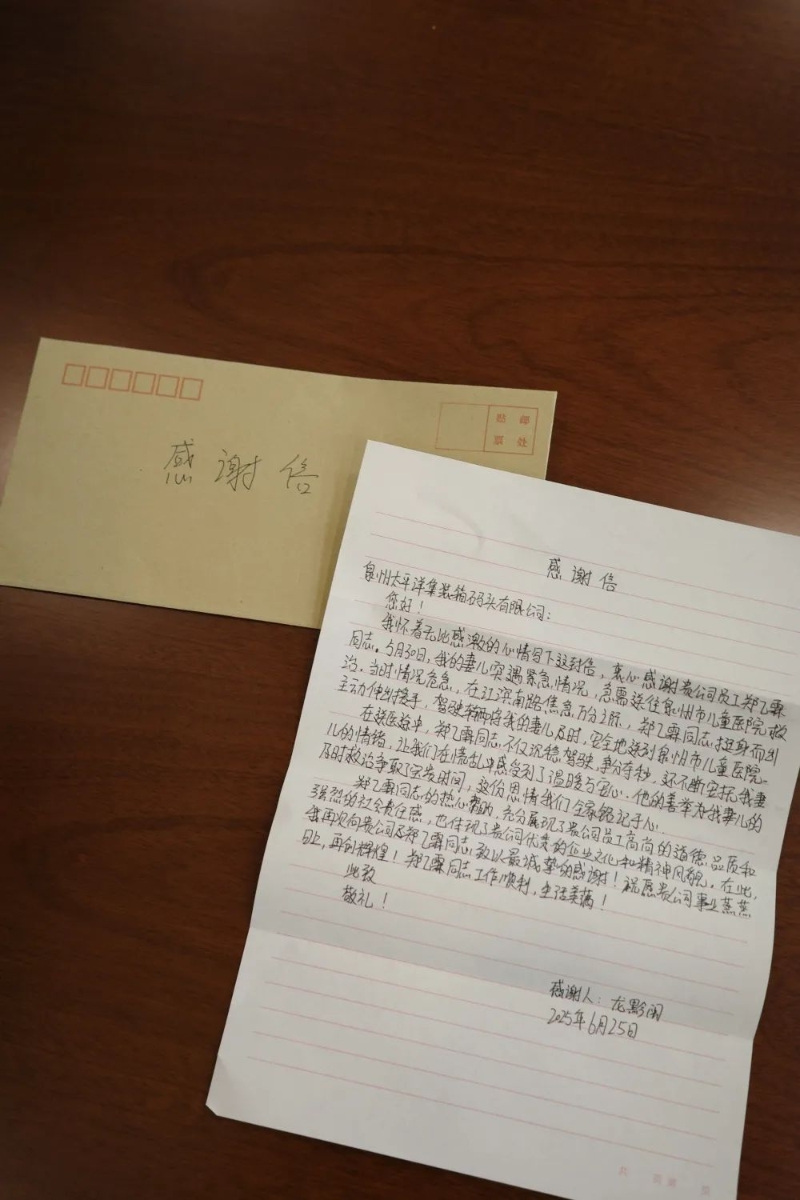 贴 邮
票 处
感谢信
感谢信
泉州太平洋集装箱码头有限公司：
您好！
我怀着无比感激的心情写下这封信，衷心感谢贵公司员工郑乙霖
同志。5月30日，我的妻儿突遇紧急情况，急需送往泉州市儿童医院救
治。当时情况危急，在江滨南路焦急万分之际，郑乙霖同志挺身而出
主动伸出援手，驾驶车辆将我的妻儿及时、安全地送到泉州市儿童医院。
在送医途中，郑乙霖同志不仅沉稳驾驶，争分夺秒，还不断安抚我妻
儿的情绪，让我们在慌乱中感受到了温暖与安心。他的善举为我妻儿的
及时救治争取了宝贵时间，这份恩情我们全家铭记于心。
郑乙霖同志的热心帮助，充分展现了贵公司员工高尚的道德品质和
强烈的社会责任感，也体现了贵公司优秀的企业文化和精神风貌。在此，
我再次向贵公司及郑乙霖同志致以最诚挚的感谢！祝愿贵公司事业蒸蒸
日上，再创辉煌！郑乙霖同志工作顺利，生活美满！
此致
敬礼！
感谢人：龙黔闽
2025年6月25日